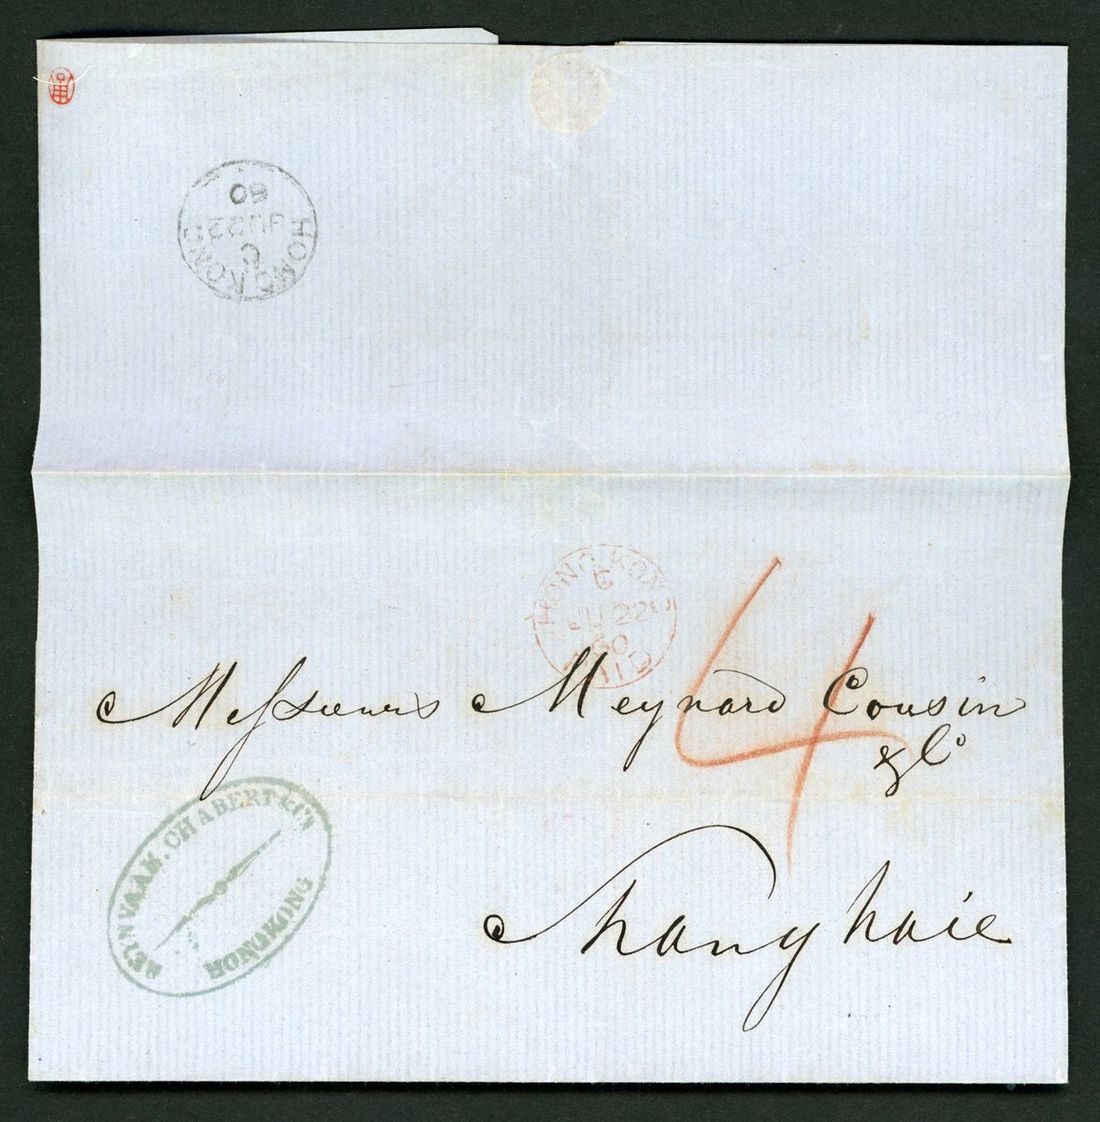 HONG KONG
C
JU 22
60
HONG KONG
C
JU 22
60
PAID
4
Messieurs Meynard Cousin
& Co
Shanghaie
REYNVAAN, CHABERT & Co
HONGKONG